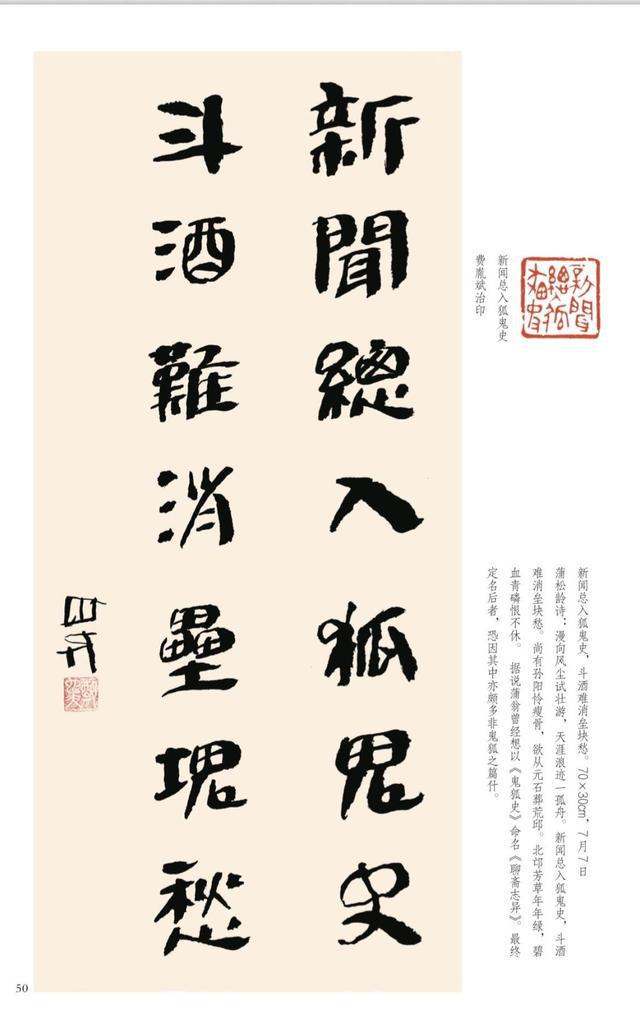 新聞總入狐鬼史
斗酒難消壘塊愁
新闻总入狐鬼史
费胤斌治印
新闻总入狐鬼史，斗酒难消垒块愁。70×30cm，7月7日
蒲松龄诗：漫向风尘试壮游，天涯浪迹一孤舟。新闻总入狐鬼史，斗酒
难消垒块愁。尚有孙阳怜瘦骨，欲从元石葬荒邱。北邙芳草年年绿，碧
血青磷恨不休。 据说蒲翁曾经想以《鬼狐史》命名《聊斋志异》。最终
定名后者，恐因其中亦颇多非鬼狐之篇什。
50